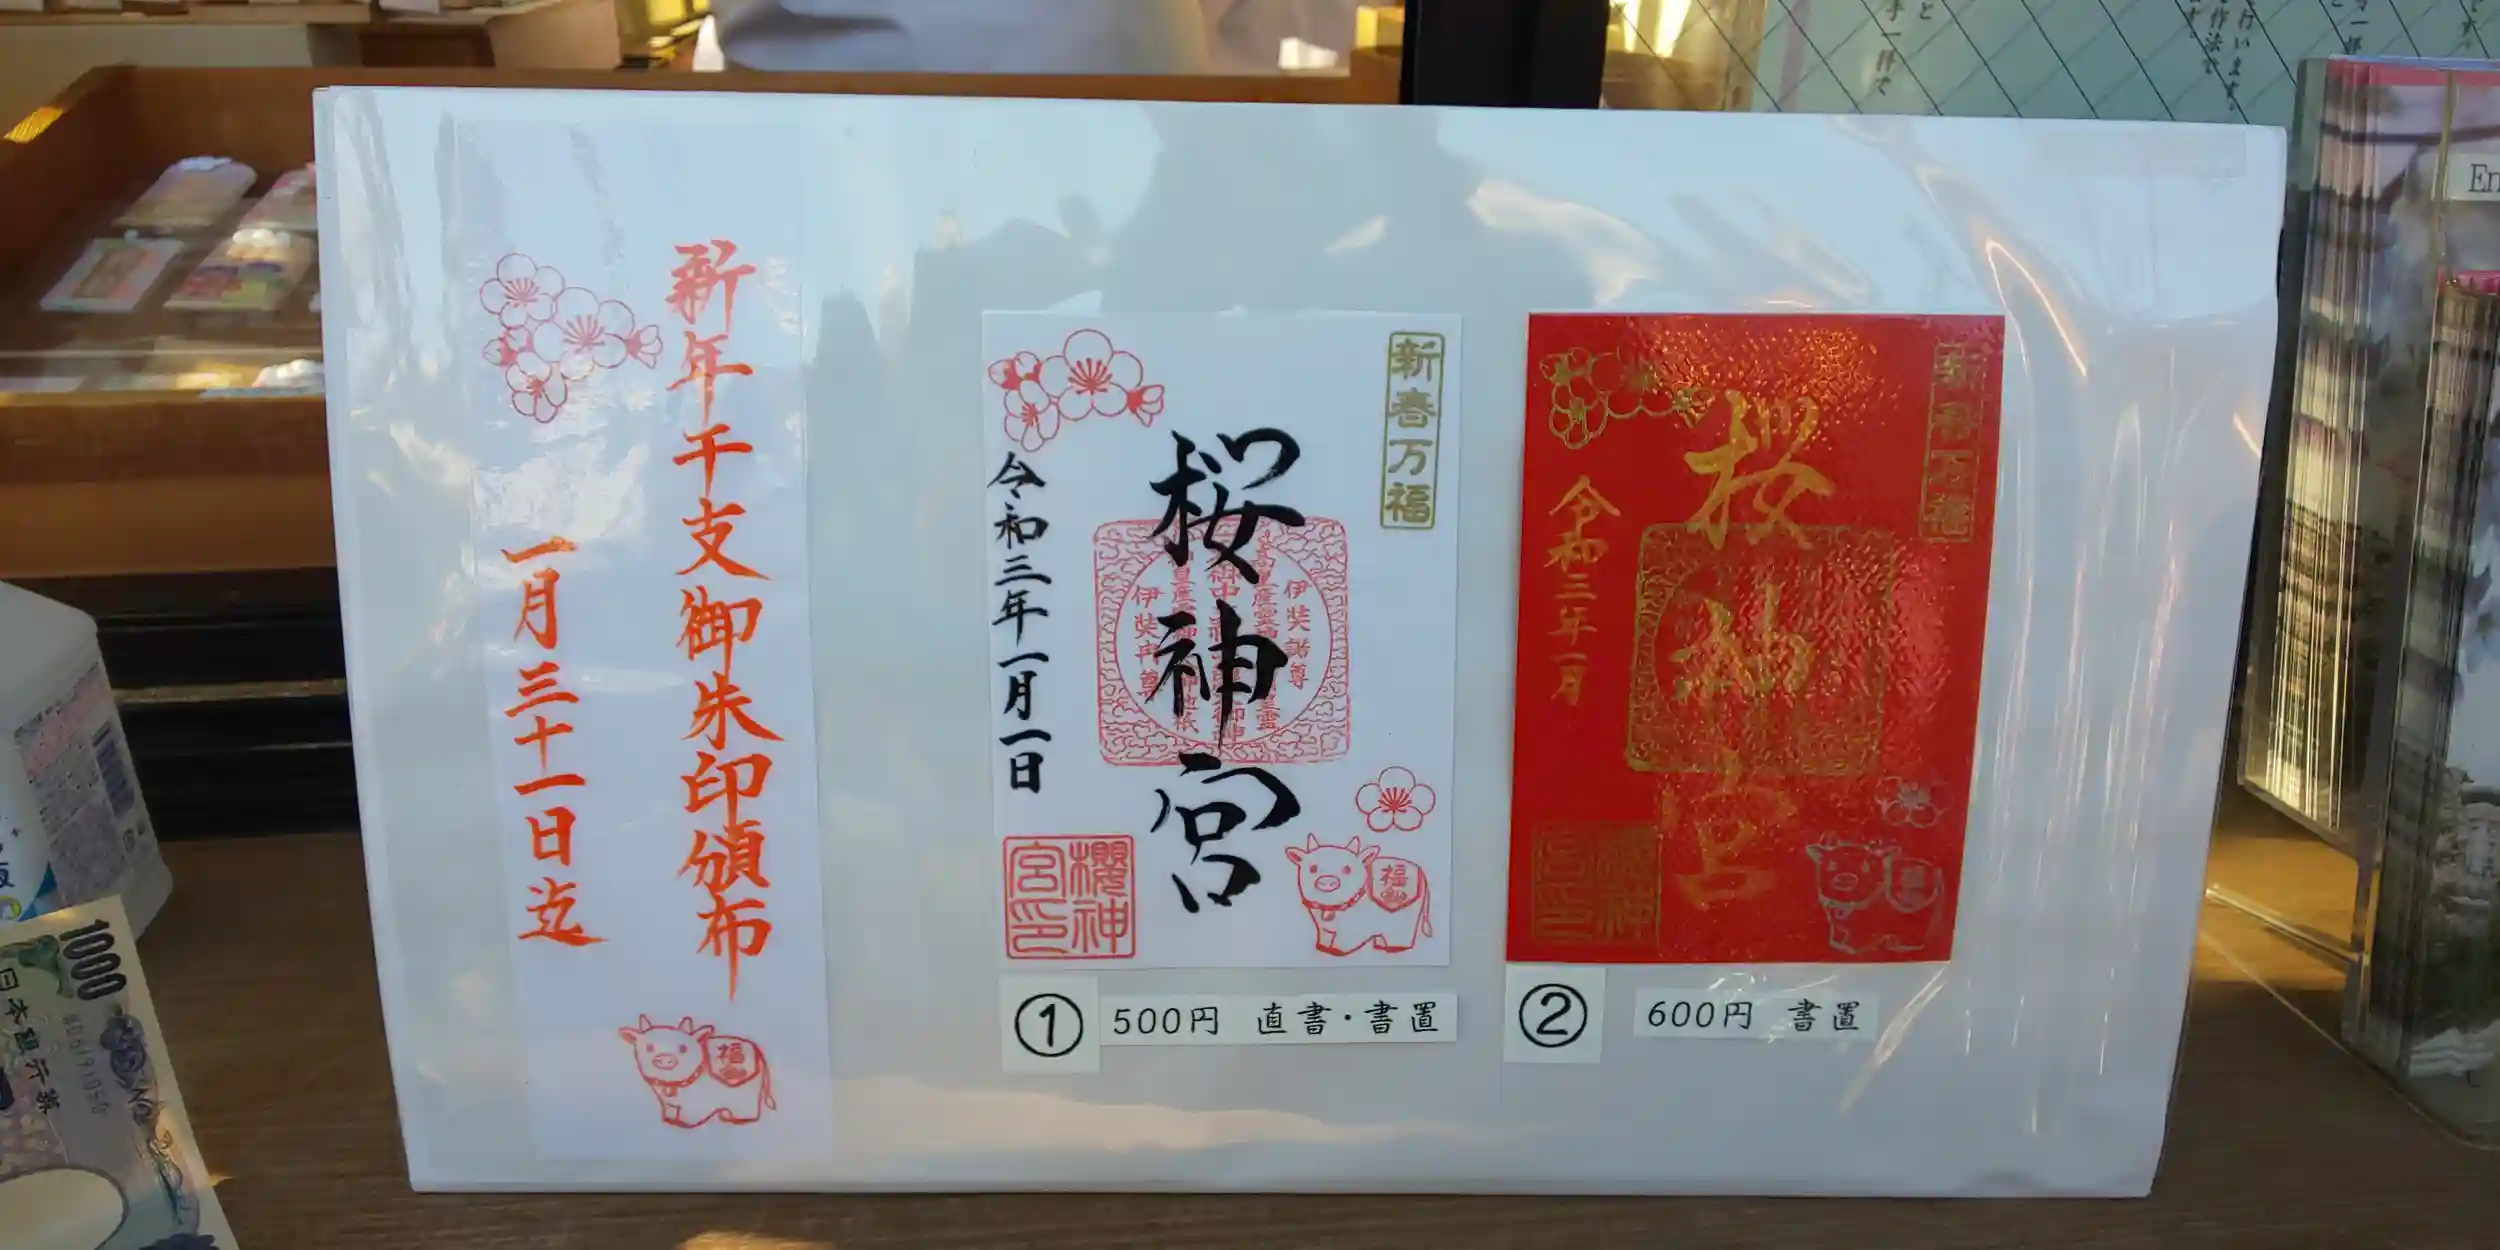 新年干支御朱印頒布
一月三十一日迄
福
新春万福
桜神宮
令和三年一月一日
伊弉諾尊
伊弉冉尊
櫻神
宮印
福
① 500円 直書・書置
新春万福
桜神宮
令和三年一月
② 600円 書置
1000
日本銀行券
En